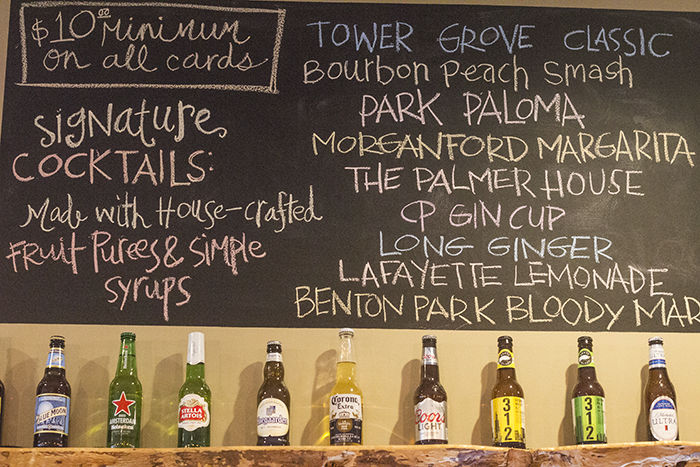 $10.00 minimum
on all cards
Signature
COCKTAILS:
Made with House-crafted
Fruit Purees & simple
syrups
TOWER GROVE CLASSIC
Bourbon Peach Smash
PARK PALOMA
MORGANFORD MARGARITA
THE PALMER HOUSE
CP GIN CUP
LONG GINGER
LAFAYETTE LEMONADE
BENTON PARK BLOODY MAR
BLUE MOON
AMSTERDAM
Heineken
STELLA
ARTOIS
Hoegaarden
Corona
Extra
Coors
LIGHT
312
312
ULTRA